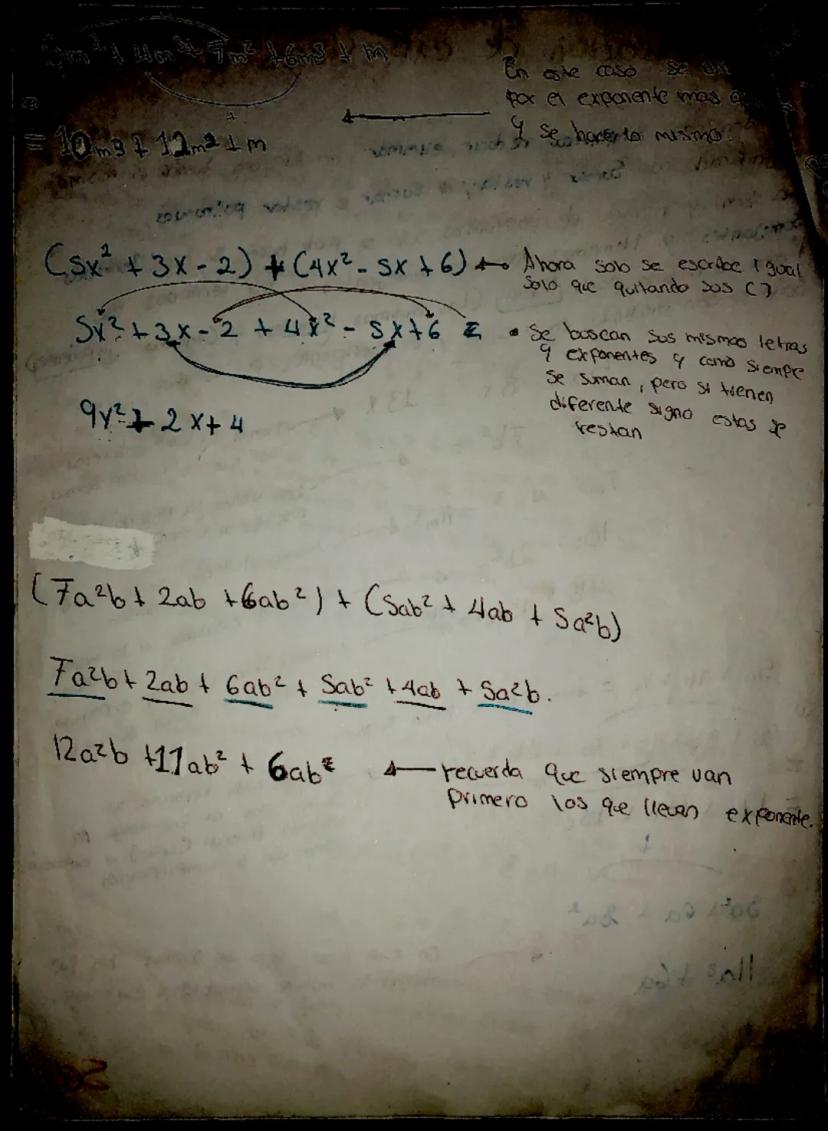 5m² + 4m³ + 7m² + 6m³ + m
En este caso se
por el exponente mas
= 10m3 + 12m2 + m
y se hacer lo mismo.
(5x² + 3x - 2) + (4x² - 5x + 6) ← Ahora solo se escribe igual
solo que quitando sus ( )
5x² + 3x - 2 + 4x² - 5x + 6
• Se buscan sus mismas letras
y exponentes y como siempre
se suman, pero si tienen
diferente signo estas se
restan
9x² + 2x + 4
(7a²b + 2ab + 6ab²) + (5ab² + 4ab + 5a²b)
7a²b + 2ab + 6ab² + 5ab² + 4ab + 5a²b.
12a²b + 11ab² + 6ab ← recuerda que siempre van
primero los que llevan exponente.